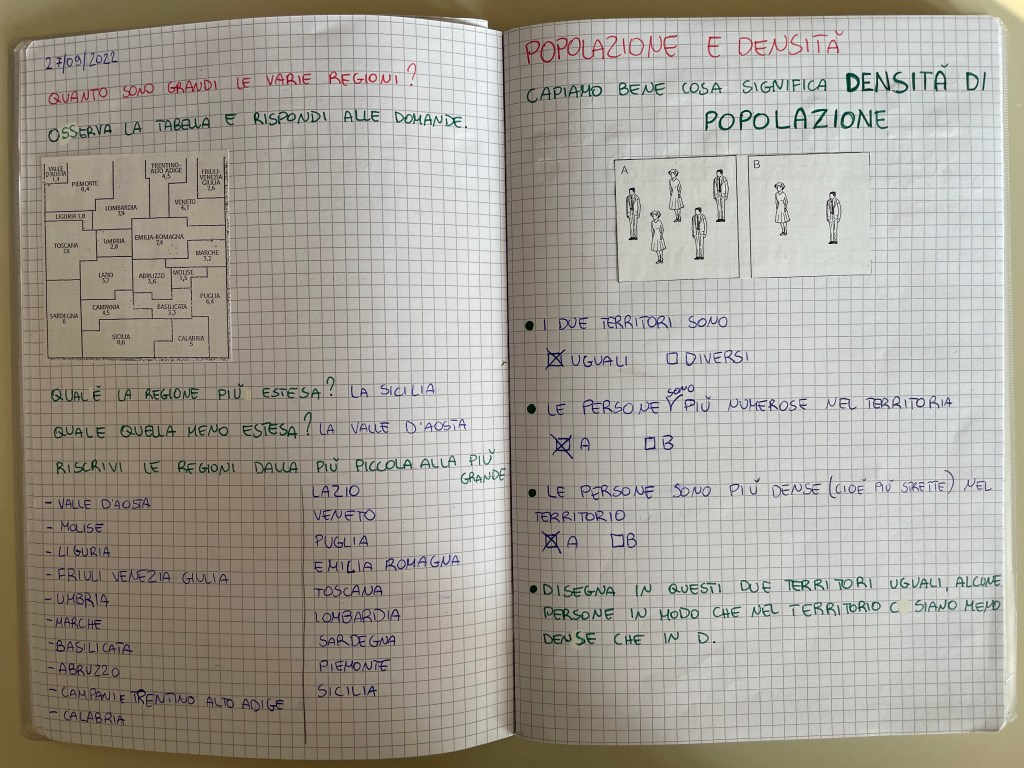 27/09/2022
QUANTO SONO GRANDI LE VARIE REGIONI?
OSSERVA LA TABELLA E RISPONDI ALLE DOMANDE.
VALLE
D'AOSTA
1,3
PIEMONTE
8,4
LOMBARDIA
7,9
TRENTINO-
ALTO ADIGE
4,5
FRIULI-
VENEZIA
GIULIA
2,6
VENETO
6,1
LIGURIA 1,8
TOSCANA
7,6
UMBRIA
2,8
EMILIA-ROMAGNA
7,4
MARCHE
3,2
LAZIO
5,7
ABRUZZO
3,6
MOLISE
1,5
PUGLIA
6,4
SARDEGNA
8
CAMPANIA
4,5
BASILICATA
3,3
SICILIA
8,6
CALABRIA
5
QUAL È LA REGIONE PIÙ ESTESA? LA SICILIA
QUALE QUELLA MENO ESTESA? LA VALLE D'AOSTA
RISCRIVI LE REGIONI DALLA PIÙ PICCOLA ALLA PIÙ
GRANDE
- VALLE D'AOSTA
- MOLISE
- LIGURIA
- FRIULI VENEZIA GIULIA
- UMBRIA
- MARCHE
- BASILICATA
- ABRUZZO
- CAMPANI E TRENTINO ALTO ADIGE
- CALABRIA
LAZIO
VENETO
PUGLIA
EMILIA ROMAGNA
TOSCANA
LOMBARDIA
SARDEGNA
PIEMONTE
SICILIA
POPOLAZIONE E DENSITÀ
CAPIAMO BENE COSA SIGNIFICA DENSITÀ DI
POPOLAZIONE
A
B
• I DUE TERRITORI SONO
☒ UGUALI ☐ DIVERSI
• LE PERSONE SONO PIÙ NUMEROSE NEL TERRITORIA
☒ A ☐ B
• LE PERSONE SONO PIÙ DENSE (CIOÈ PIÙ STRETTE) NEL
TERRITORIO
☒ A ☐ B
• DISEGNA IN QUESTI DUE TERRITORI UGUALI, ALCUNE
PERSONE IN MODO CHE NEL TERRITORIO C SIANO MENO
DENSE CHE IN D.